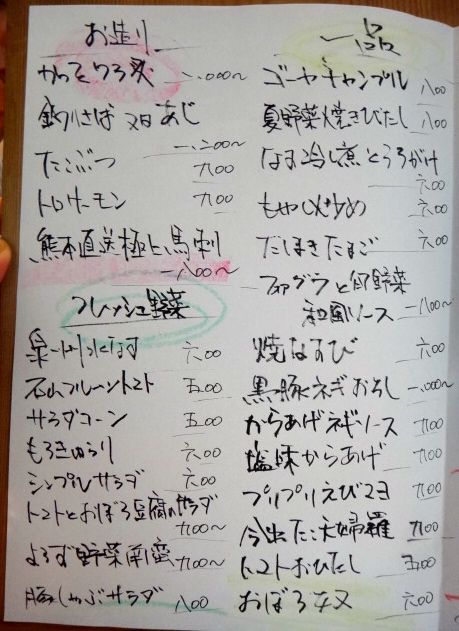 お造り
一、〇〇〇〜
釣りさば 又は あじ
一、二〇〇〜
たこぶつ 九〇〇
トロサーモン 九〇〇
熊本直送極上馬刺
一、八〇〇〜
フレッシュ野菜
六〇〇
フルーツトマト 五〇〇
サラダコーン 五〇〇
もろきゅうり 六〇〇
シンプルサラダ 六〇〇
トマトとおぼろ豆腐のサラダ
九〇〇〜
野菜南蛮 九〇〇〜
豚しゃぶサラダ 八〇〇
一品
ゴーヤチャンプル 八〇〇
夏野菜焼きびたし 八〇〇
なす冷し煮とろろがけ
六〇〇
もやし炒め 六〇〇
だしまきたまご 六〇〇
フォアグラと 野菜
和風ソース 一、八〇〇〜
焼なすび 六〇〇
黒豚ネギおろし 一、〇〇〇〜
からあげネギソース 九〇〇
塩味からあげ 九〇〇
プリプリえびマヨ 九〇〇
今出たこ天婦羅 九〇〇
トマトおひたし 五〇〇
おぼろ奴 六〇〇